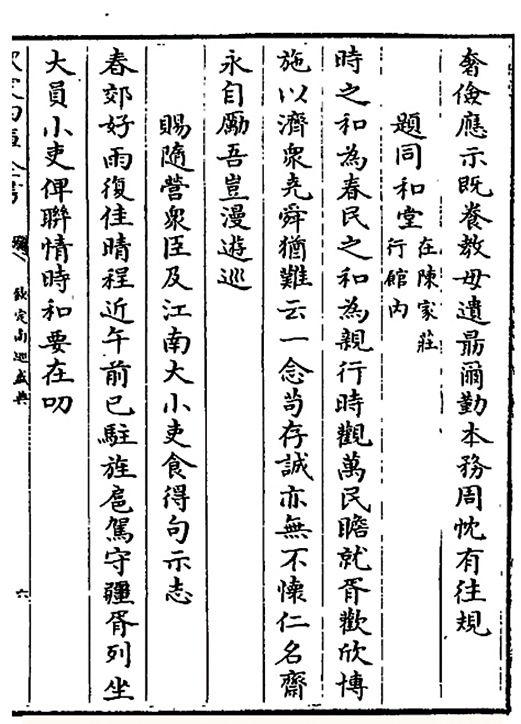 奢儉應示既養教毋遺勗爾勤本務周忱有往規
題同和堂在陳家莊行館内
時之和為春民之和為親行時觀萬民瞻就胥歡欣博
施以濟衆堯舜猶難云一念茍存誠亦無不懷仁名齋
永自勵吾豈漫遊巡
賜隨營衆臣及江南大小吏食得句示志
春郊好雨復佳晴程近午前已駐旌扈駕守疆胥列坐
大員小吏俾聯情時和要在叨
欽定四庫全書
欽定南巡盛典
六